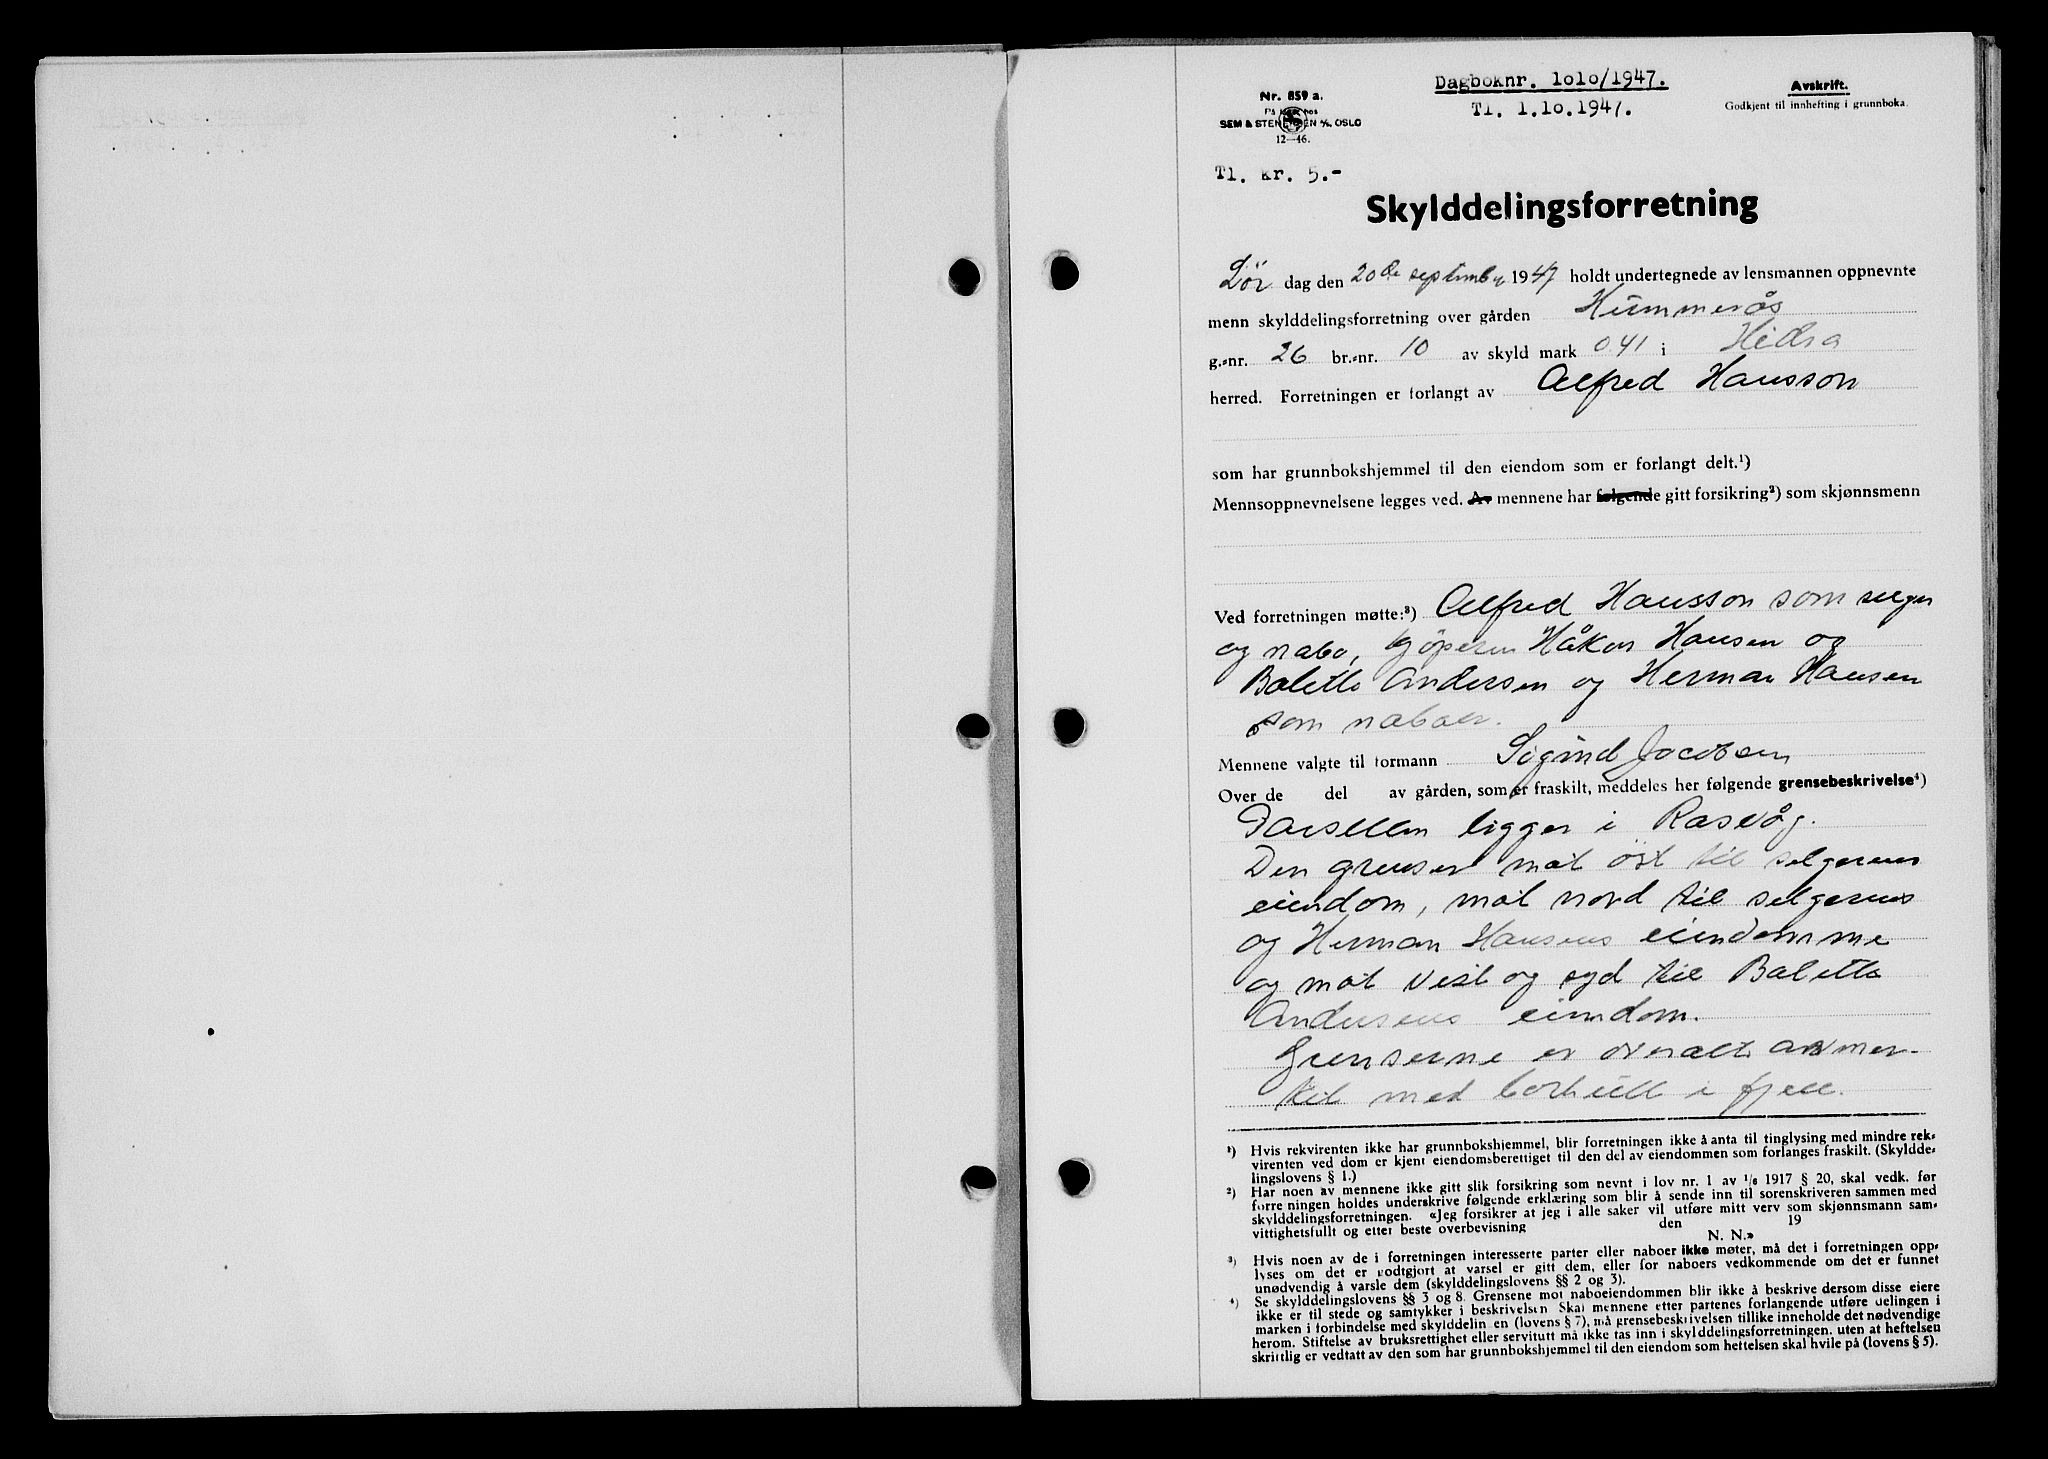 Nr. 859 a.
På lager hos
SEM & STENERSEN A/S, OSLO
12—46.
Dagboknr. 1010/1947.
Tl. 1.10.1947.
Avskrift.
Godkjent til innhefting i grunnboka.
Tl. kr. 5.-
Skylddelingsforretning
Lör dag den 20de september 1947 holdt undertegnede av lensmannen oppnevnte
menn skylddelingsforretning over gården Hummerås
g.-nr. 26 br.-nr. 10 av skyld mark 0 41 i Hidra
herred. Forretningen er forlangt av Alfred Hansson
som har grunnbokshjemmel til den eiendom som er forlangt delt.¹)
Mennsoppnevnelsene legges ved. Av mennene har følgende gitt forsikring²) som skjønnsmenn
Ved forretningen møtte:³) Alfred Hansson som selger
og nabo, kjöperen Håkon Hansen og
Balette Andersen og Herman Hansen
som naboer.
Mennene valgte til formann Sigvind Jacobsen
Over de del av gården, som er fraskilt, meddeles her følgende grensebeskrivelse⁴)
Parsellen ligger i Rasvåg.
Den grenser mot öst til selgerens
eiendom, mot nord til selgerens
og Herman Hansens eiendomme
og mot vest og syd til Balette
Andersens eiendom.
Grenserne er overalt avmer-
ket med borhull i fjell.
¹) Hvis rekvirenten ikke har grunnbokshjemmel, blir forretningen ikke å anta til tinglysing med mindre rek-
virenten ved dom er kjent eiendomsberettiget til den del av eiendommen som forlanges fraskilt. (Skyldde-
lingslovens § 1.)
²) Har noen av mennene ikke gitt slik forsikring som nevnt i lov nr. 1 av 1/6 1917 § 20, skal vedk. før
forretningen holdes underskrive følgende erklæring som blir å sende inn til sorenskriveren sammen med
skylddelingsforretningen. «Jeg forsikrer at jeg i alle saker vil utføre mitt verv som skjønnsmann sam-
vittighetsfullt og etter beste overbevisning den 19
N. N.»
³) Hvis noen av de i forretningen interesserte parter eller naboer ikke møter, må det i forretningen opp-
lyses om det er godtgjort at varsel er gitt dem, eller for naboers vedkommende om det er funnet
unødvendig å varsle dem (skylddelingslovens §§ 2 og 3).
⁴) Se skylddelingslovens §§ 3 og 8. Grensene mot naboeiendommen blir ikke å beskrive dersom disse eiere
ikke er til stede og samtykker i beskrivelsen. Skal mennene etter partenes forlangende utføre delingen i
marken i forbindelse med skylddelingen (lovens § 7), må grensebeskrivelsen tillike inneholde det nødvendige
herom. Stiftelse av bruksrettighet eller servitutt må ikke tas inn i skylddelingsforretningen, uten at heftelsen
skriftlig er vedtatt av den som har grunnbokshjemmel til den eiendom som heftelsen skal hvile på (lovens § 5).